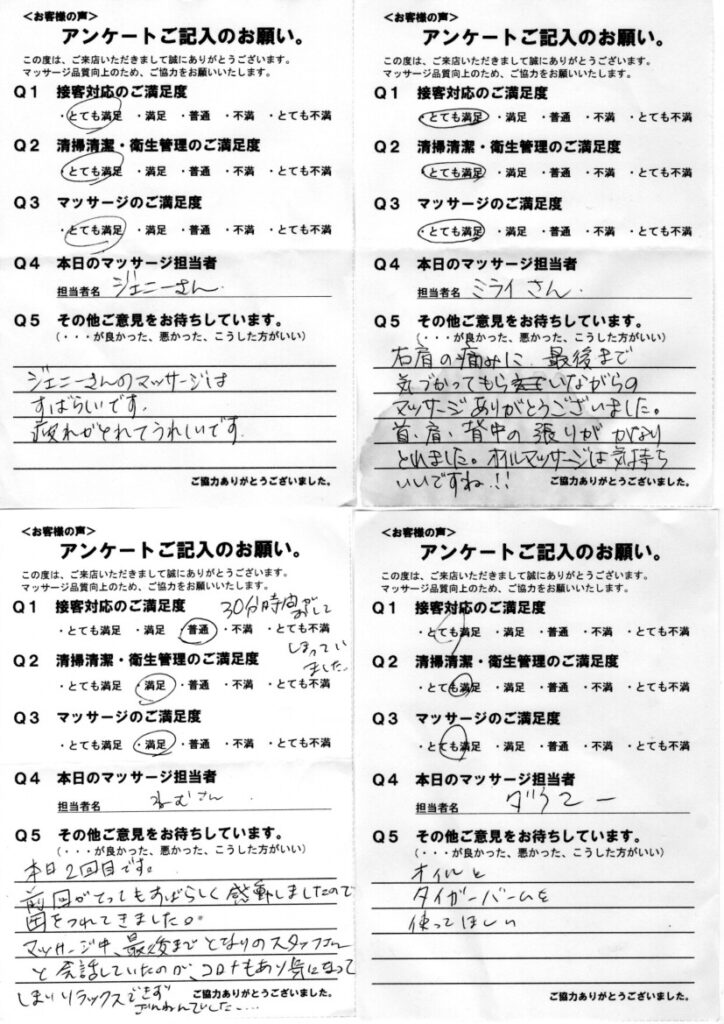 <お客様の声>
アンケートご記入のお願い。
この度は、ご来店いただきまして誠にありがとうございます。
マッサージ品質向上のため、ご協力をお願いいたします。
Q1 接客対応のご満足度
・とても満足 ・満足 ・普通 ・不満 ・とても不満
Q2 清掃清潔・衛生管理のご満足度
・とても満足 ・満足 ・普通 ・不満 ・とても不満
Q3 マッサージのご満足度
・とても満足 ・満足 ・普通 ・不満 ・とても不満
Q4 本日のマッサージ担当者
担当者名 ジェニーさん
Q5 その他ご意見をお待ちしています。
(・・・が良かった、悪かった、こうした方がいい)
ジェニーさんのマッサージは
すばらしいです。
疲れがとれてうれしいです。
ご協力ありがとうございました。
<お客様の声>
アンケートご記入のお願い。
この度は、ご来店いただきまして誠にありがとうございます。
マッサージ品質向上のため、ご協力をお願いいたします。
Q1 接客対応のご満足度
・とても満足 ・満足 ・普通 ・不満 ・とても不満
Q2 清掃清潔・衛生管理のご満足度
・とても満足 ・満足 ・普通 ・不満 ・とても不満
Q3 マッサージのご満足度
・とても満足 ・満足 ・普通 ・不満 ・とても不満
Q4 本日のマッサージ担当者
担当者名 ミライさん
Q5 その他ご意見をお待ちしています。
(・・・が良かった、悪かった、こうした方がいい)
右肩の痛みに、最後まで
気づかってもらいながらの
マッサージありがとうございました。
首・肩・背中の張りが かなり
とれました。オイルマッサージは気持ち
いいですね!!
ご協力ありがとうございました。
<お客様の声>
アンケートご記入のお願い。
この度は、ご来店いただきまして誠にありがとうございます。
マッサージ品質向上のため、ご協力をお願いいたします。
Q1 接客対応のご満足度
30分時間が
・とても満足 ・満足 ・普通 ・不満 ・とても不満
しまってい
ました。
Q2 清掃清潔・衛生管理のご満足度
・とても満足 ・満足 ・普通 ・不満 ・とても不満
Q3 マッサージのご満足度
・とても満足 ・満足 ・普通 ・不満 ・とても不満
Q4 本日のマッサージ担当者
担当者名 さん
Q5 その他ご意見をお待ちしています。
(・・・が良かった、悪かった、こうした方がいい)
本日2回目です。
前回がとってもすばらしく感動しましたので
をつれてきました。
マッサージ中、最後までとなりのスタッフさん
と会話していたのが、コロナもあり気になって
しまいリラックスできず
ざんねんでした……
ご協力ありがとうございました。
<お客様の声>
アンケートご記入のお願い。
この度は、ご来店いただきまして誠にありがとうございます。
マッサージ品質向上のため、ご協力をお願いいたします。
Q1 接客対応のご満足度
・とても満足 ・満足 ・普通 ・不満 ・とても不満
Q2 清掃清潔・衛生管理のご満足度
・とても満足 ・満足 ・普通 ・不満 ・とても不満
Q3 マッサージのご満足度
・とても満足 ・満足 ・普通 ・不満 ・とても不満
Q4 本日のマッサージ担当者
担当者名
Q5 その他ご意見をお待ちしています。
(・・・が良かった、悪かった、こうした方がいい)
オイルと
タイガーバームを
使ってほしい
ご協力ありがとうございました。